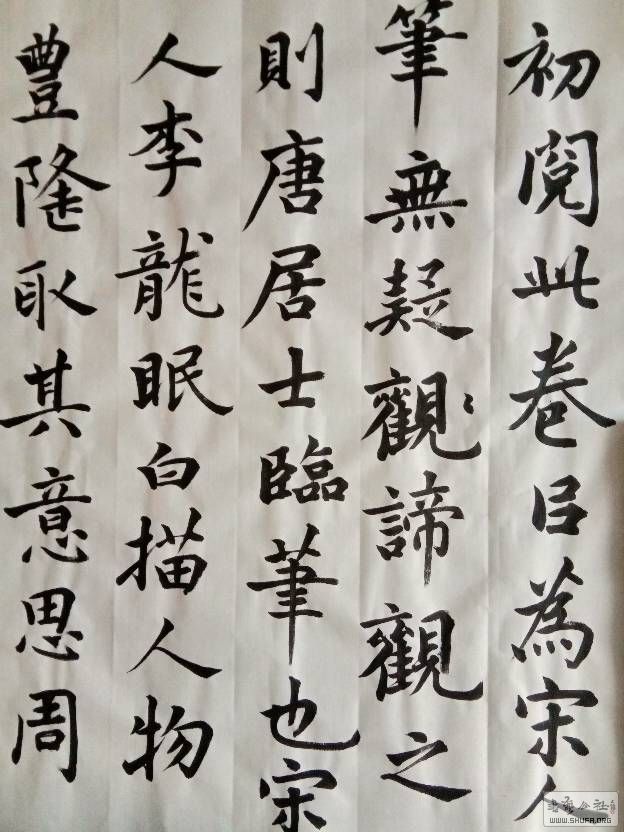 初閱此卷㠯為宋人
筆無疑觀諦觀之
則唐居士臨筆也宋
人李龍眠白描人物
豐隆取其意思周
WWW.SHUFA.ORG